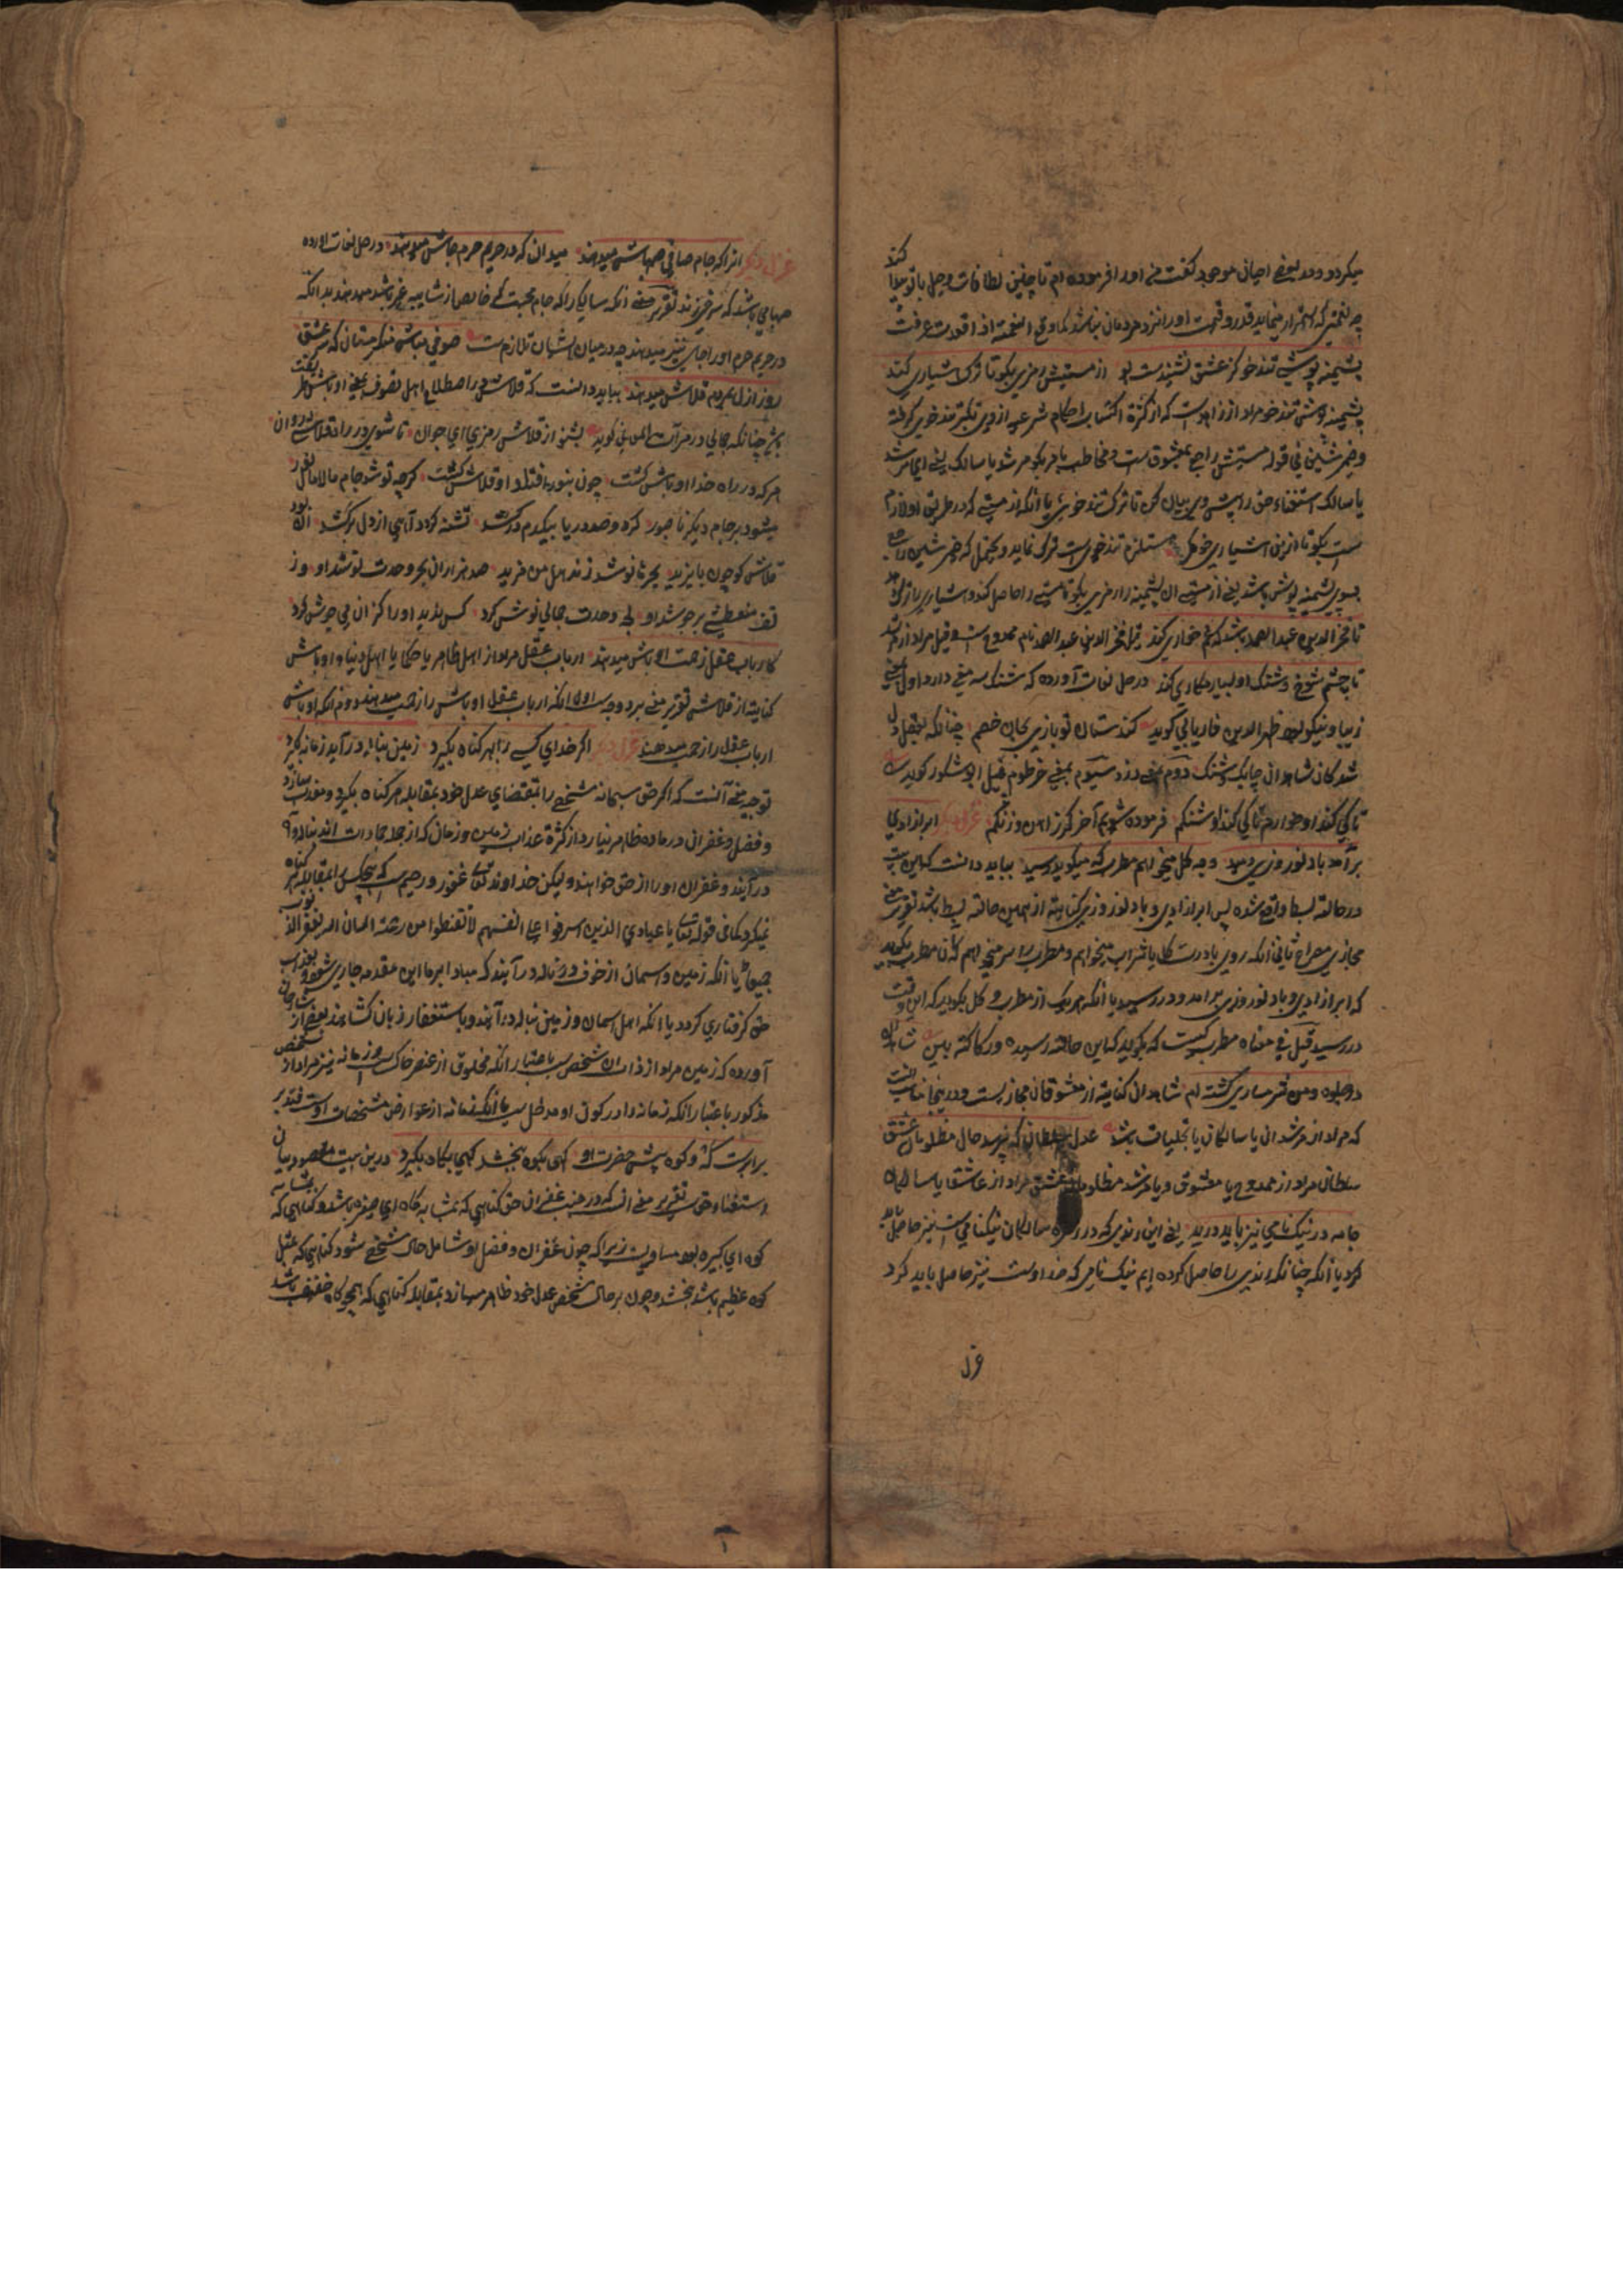 میکردد و در بعضے احیان موجود گفت من اورا فرموده ام تا چنین لطافات وصل با تو میلا کند
چه نعمتیکه استمرار مینماید قدر و قیمت او را نزد مردمان نباشد کما وقع النعمة اذا فقدت عرفت
پشمینه پوش تند خو کز عشق نشنیدست بو از مستیش رمزی بگو تا ترک هشیاری کند
پشمینه پوش تند خو مراد از زاهدست که از کثرة اکتساب احکام شرعیه از وی تکبر تند خویی گرفته
و ضمیر شین فی قوله مستیش راجع بمعشوق است و مخاطب بامر بگو مرشد یا سالک یعنی ای مرشد
یا سالک استغناء حق را پیش وی بیان کن تا ترک تند خویی یا آنکه از مستی که در طریق او لازم
است بگو تا ازین هشیاری خود که مستلزم تند خویی است ترک نماید و یحتمل که ضمیر شین راجع
بسوی پشمینه پوش باشد یعنی از مستی آن پشمینه را رمزی بگو تا مستی را حاصل کند و هشیاری را ترک دهد
تا فخرالدین عبدالصمد باشد که غمخواری کند قیل فخرالدین عبدالصمد نام ممدوح است و قیل مراد از مرشد
با چشم شوخ و شنگ او بسیار مکاری کند در حل لغات آورده که شنگ سه معنی دارد اول بمعنی
زیبا و نیکو بود ظهیرالدین فاریابی گوید
شد کان شاهدان چابک و شنگ دوم بمعنی دزد سیوم بمعنی خرطوم فیل ابوشکور گوید
فرموده شویم آخر کرز آهن و زنگم غزل دیگر ابر آزادی
برآمد باد نوروزی وزید وجه گل میخواهم مطرب که میگوید رسید بباید دانست که این بیت
در حالة بسط واقع شده پس ابر آزادی و باد نوروزی کنایة از همین حالة بسط باشد تقریر معنی
مجازی مصراع ثانی آنکه روی یا درست گل یا شراب میخواهم و مطرب را میخواهم که آن مطرب بگوید
که ابر آزادی و باد نوروزی برآمد و در رسید یا آنکه هر یک از مطرب و گل بگوید که این وقت
در رسید قیل فی معناه مطرب کیست که بگوید که این حالة رسیده و رکاکته بین شاهدان
در جلوه و من شرمساری گشته ام شاهدان کنایة از معشوقان مجازیست و در اینجا مناسب آنست
که مراد از مرشدان یا سالکان یا تجلیات باشد عدل سلطان که نپرسد حال مظلومان عشق
سلطان مراد از ممدوح یا معشوق و یا مرشد مظلومان عشق مراد از عاشقان یا سالکان
جامه در نیک نامی نیز باید درید یعنی این رندی که در راه سالکان نیکنامی است نیز حاصل باید
کرد یا آنکه چنانکه رندی را حاصل کرده ایم نیک نامی که ضد اوست نیز حاصل باید کرد
غزل
غزل دیگر آنرا که جام صافی صهباش میدهند میدان که در حریم حرم جاش میدهند در حل لغات آورده
صهبا می باشد که سرخی زند تقریر معنی آنکه سالکی را که جام محبت که خالص از شایبه غیر باشد میدهند بدانکه
در حریم حرم او را جای نیز میدهند چه درمیان ایشان تلازم است صوفی مباش منکر مستان که سر عشق
روز ازل بمردم قلاش میدهند بباید دانست که قلاش در اصطلاح اهل تصوف بمعنی اوباش گفته
چنانکه جمالی در مرآت المعانی گوید بشنو از قلاش رمزی ای جوان تا شوی در راه قلاشی روان
هر که در راه خدا اوباش گشت چون بنور افتاد او قلاش گشت گرچه نوشد جام مالامال نور
میشود بر جام دیگر ناصبور گر دو صد دریا بیکدم درکشد تشنه گردد آهی از دل برکشد آن بود
قلاش کو چون بایزید بحرها نوشد زند هل من مزید صد هزاران بحر وحدت نوشد او وز
تف منعطشی بر جوشد او بحر وحدت جمالی نوش کرد کس ندید او را کز آن می جوش کرد
کارباب عقل زحمت اوباش میدهند ارباب عقل مراد از اهل ظاهر یا حکما یا اهل دنیا و اوباش
کنایة از قلاش تقریر معنی بر دو وجه است اول آنکه ارباب عقل اوباش را زحمت میدهند دوم آنکه اوباش
ارباب عقل را زحمت میدهند غزل دیگر اگر خدای کسی را بهر گناه بگیرد زمین بناله درآید زمانه بگیرد
توجیه معنی آنست که اگر حق سبحانه شخصے را بمقتضای عدل خود بمقابله هر گناه بگیرد و معذب سازد
و فضل و غفران در ماده ظاهر نیارد از کثرة عذاب زمین و زمان که از جمله جمادات اند بناله و آه
درآیند و غفران او را از حق خواهند ولیکن خداوند تعالی غفور و رحیم است که هیچکس را بمقابله هر گناه
نمیگیرد کما فی قوله تعالی یا عبادی الذین اسرفوا علی انفسهم لا تقنطوا من رحمة الله ان الله یغفر الذنوب
جمیعا یا آنکه زمین و آسمان از خوف در ناله درآیند که مبادا بر ما این مقدمه جاری شود و بعذاب
حق گرفتاری گردد یا آنکه اهل آسمان و زمین بناله درآیند و باستغفار زبان گشایند بعضے از شارحان
آورده که زمین مراد از ذات آن شخص است باعتبار آنکه مخلوق از عنصر خاکست و زمانه نیز مراد از شخص
مذکور باعتبار آنکه زمانه را در کون او مدخل است یا آنکه زمانه از عوارض مشخصات اوست فتدبر
برابرست که و کوه پیش حضرت او گهی بکوه ببخشد گهی بکاه بگیرد درین بیت مقصود بیان
استغناء حق است تقریر معنی آنست که در جنب غفران حق گناهی که بمشابه کاه ای صغیره باشد و گناهی که بمثابه
کوه ای کبیره بود مساویست زیرا که چون غفران و فضل او شامل حال شخصے شود گناهی که مثل
کوه عظیم باشد ببخشد و چون بر حال شخصے عدل خود ظاهر سازد بمقابله گناهی که همچو کاه خفیف باشد